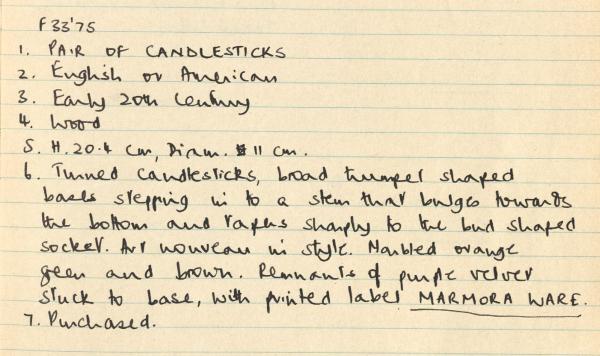 F33'75
1. PAIR OF CANDLESTICKS
2. English or American
3. Early 20th Century
4. Wood
5. H. 20.4 cm, Diam. 11 cm.
6. Turned candlesticks, broad trumpet shaped
bases stepping in to a stem that bulges towards
the bottom and tapers sharply to the bud shaped
socket. Art nouveau in style. Marbled orange
green and brown. Remnants of purple velvet
stuck to base, with printed label MARMORA WARE.
7. Purchased.